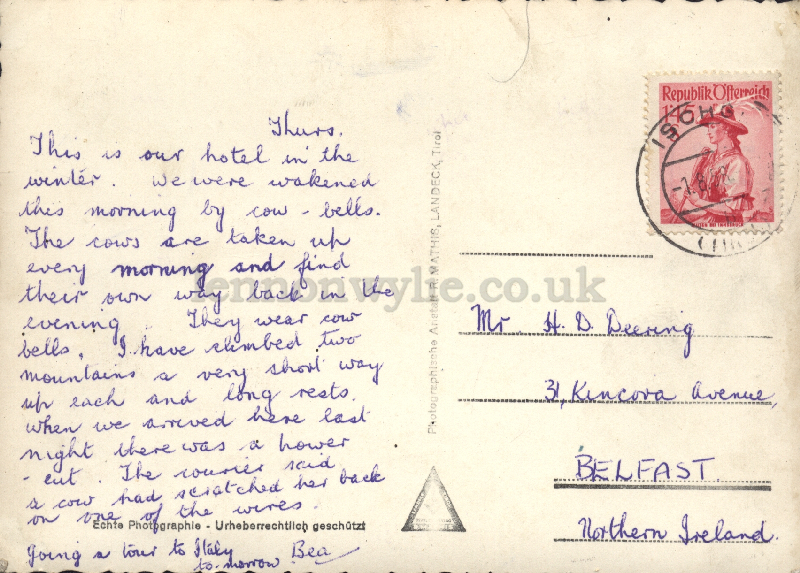 Thurs.
This is our hotel in the
winter. We were wakened
this morning by cow-bells.
The cows are taken up
every morning and find
their own way back in the
evening. They wear cow
bells. I have climbed two
mountains a very short way
up each and long rests.
when we arrived here last
night there was a hower
-cut. The courier said
a cow had scratched her back
on one of the wires.
Going a tour to Italy
to-morrow Bea
Echte Photographie - Urheberrechtlich geschützt
Photographische Anstalt R. MATHIS, LANDECK, Tirol
Republik Österreich
ISCHG
(TIROL
Mr H. D. Deering
31, Kincora Avenue,
BELFAST.
Northern Ireland.
lennonwylie.co.uk